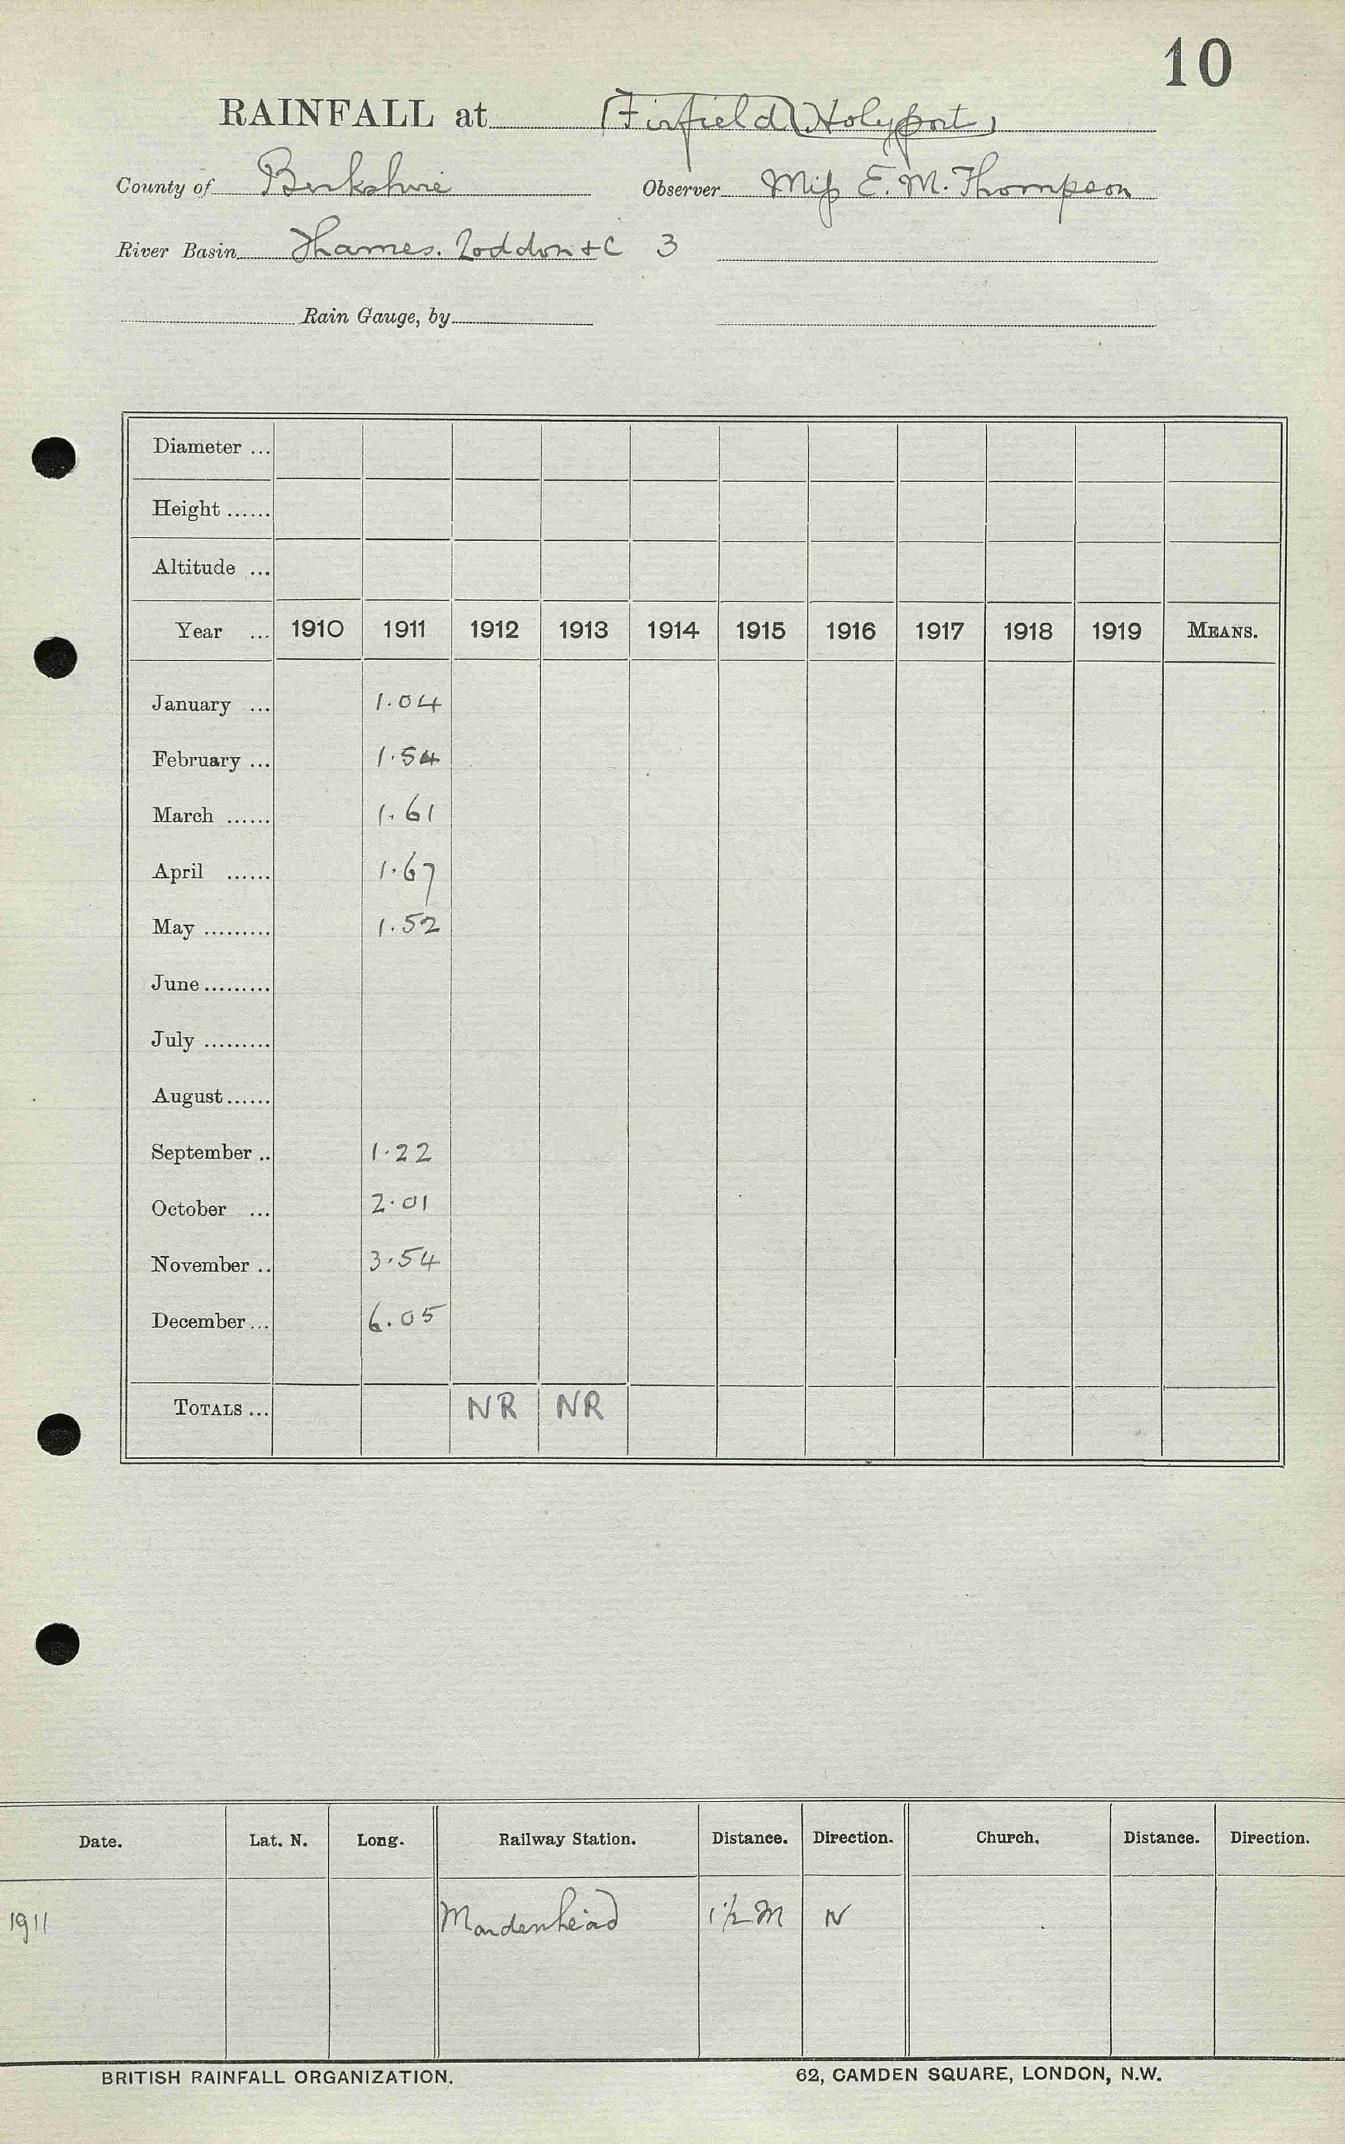 10
RAINFALL at (Firfield) (Holyport)
County of Berkshire Observer Miss E. M. Thompson
River Basin Thames. Loddon &c 3
Rain Gauge, by
Diameter ...
Height ......
Altitude ...
Year ... 1910 1911 1912 1913 1914 1915 1916 1917 1918 1919 MEANS.
January ... 1.04
February ... 1.54
March ...... 1.61
April ...... 1.67
May ......... 1.52
June.........
July .........
August......
September .. 1.22
October ... 2.01
November .. 3.54
December... 6.05
TOTALS ... NR NR
Date. Lat. N. Long. Railway Station. Distance. Direction. Church. Distance. Direction.
1911 Maidenhead 1½ M N
BRITISH RAINFALL ORGANIZATION. 62, CAMDEN SQUARE, LONDON, N.W.